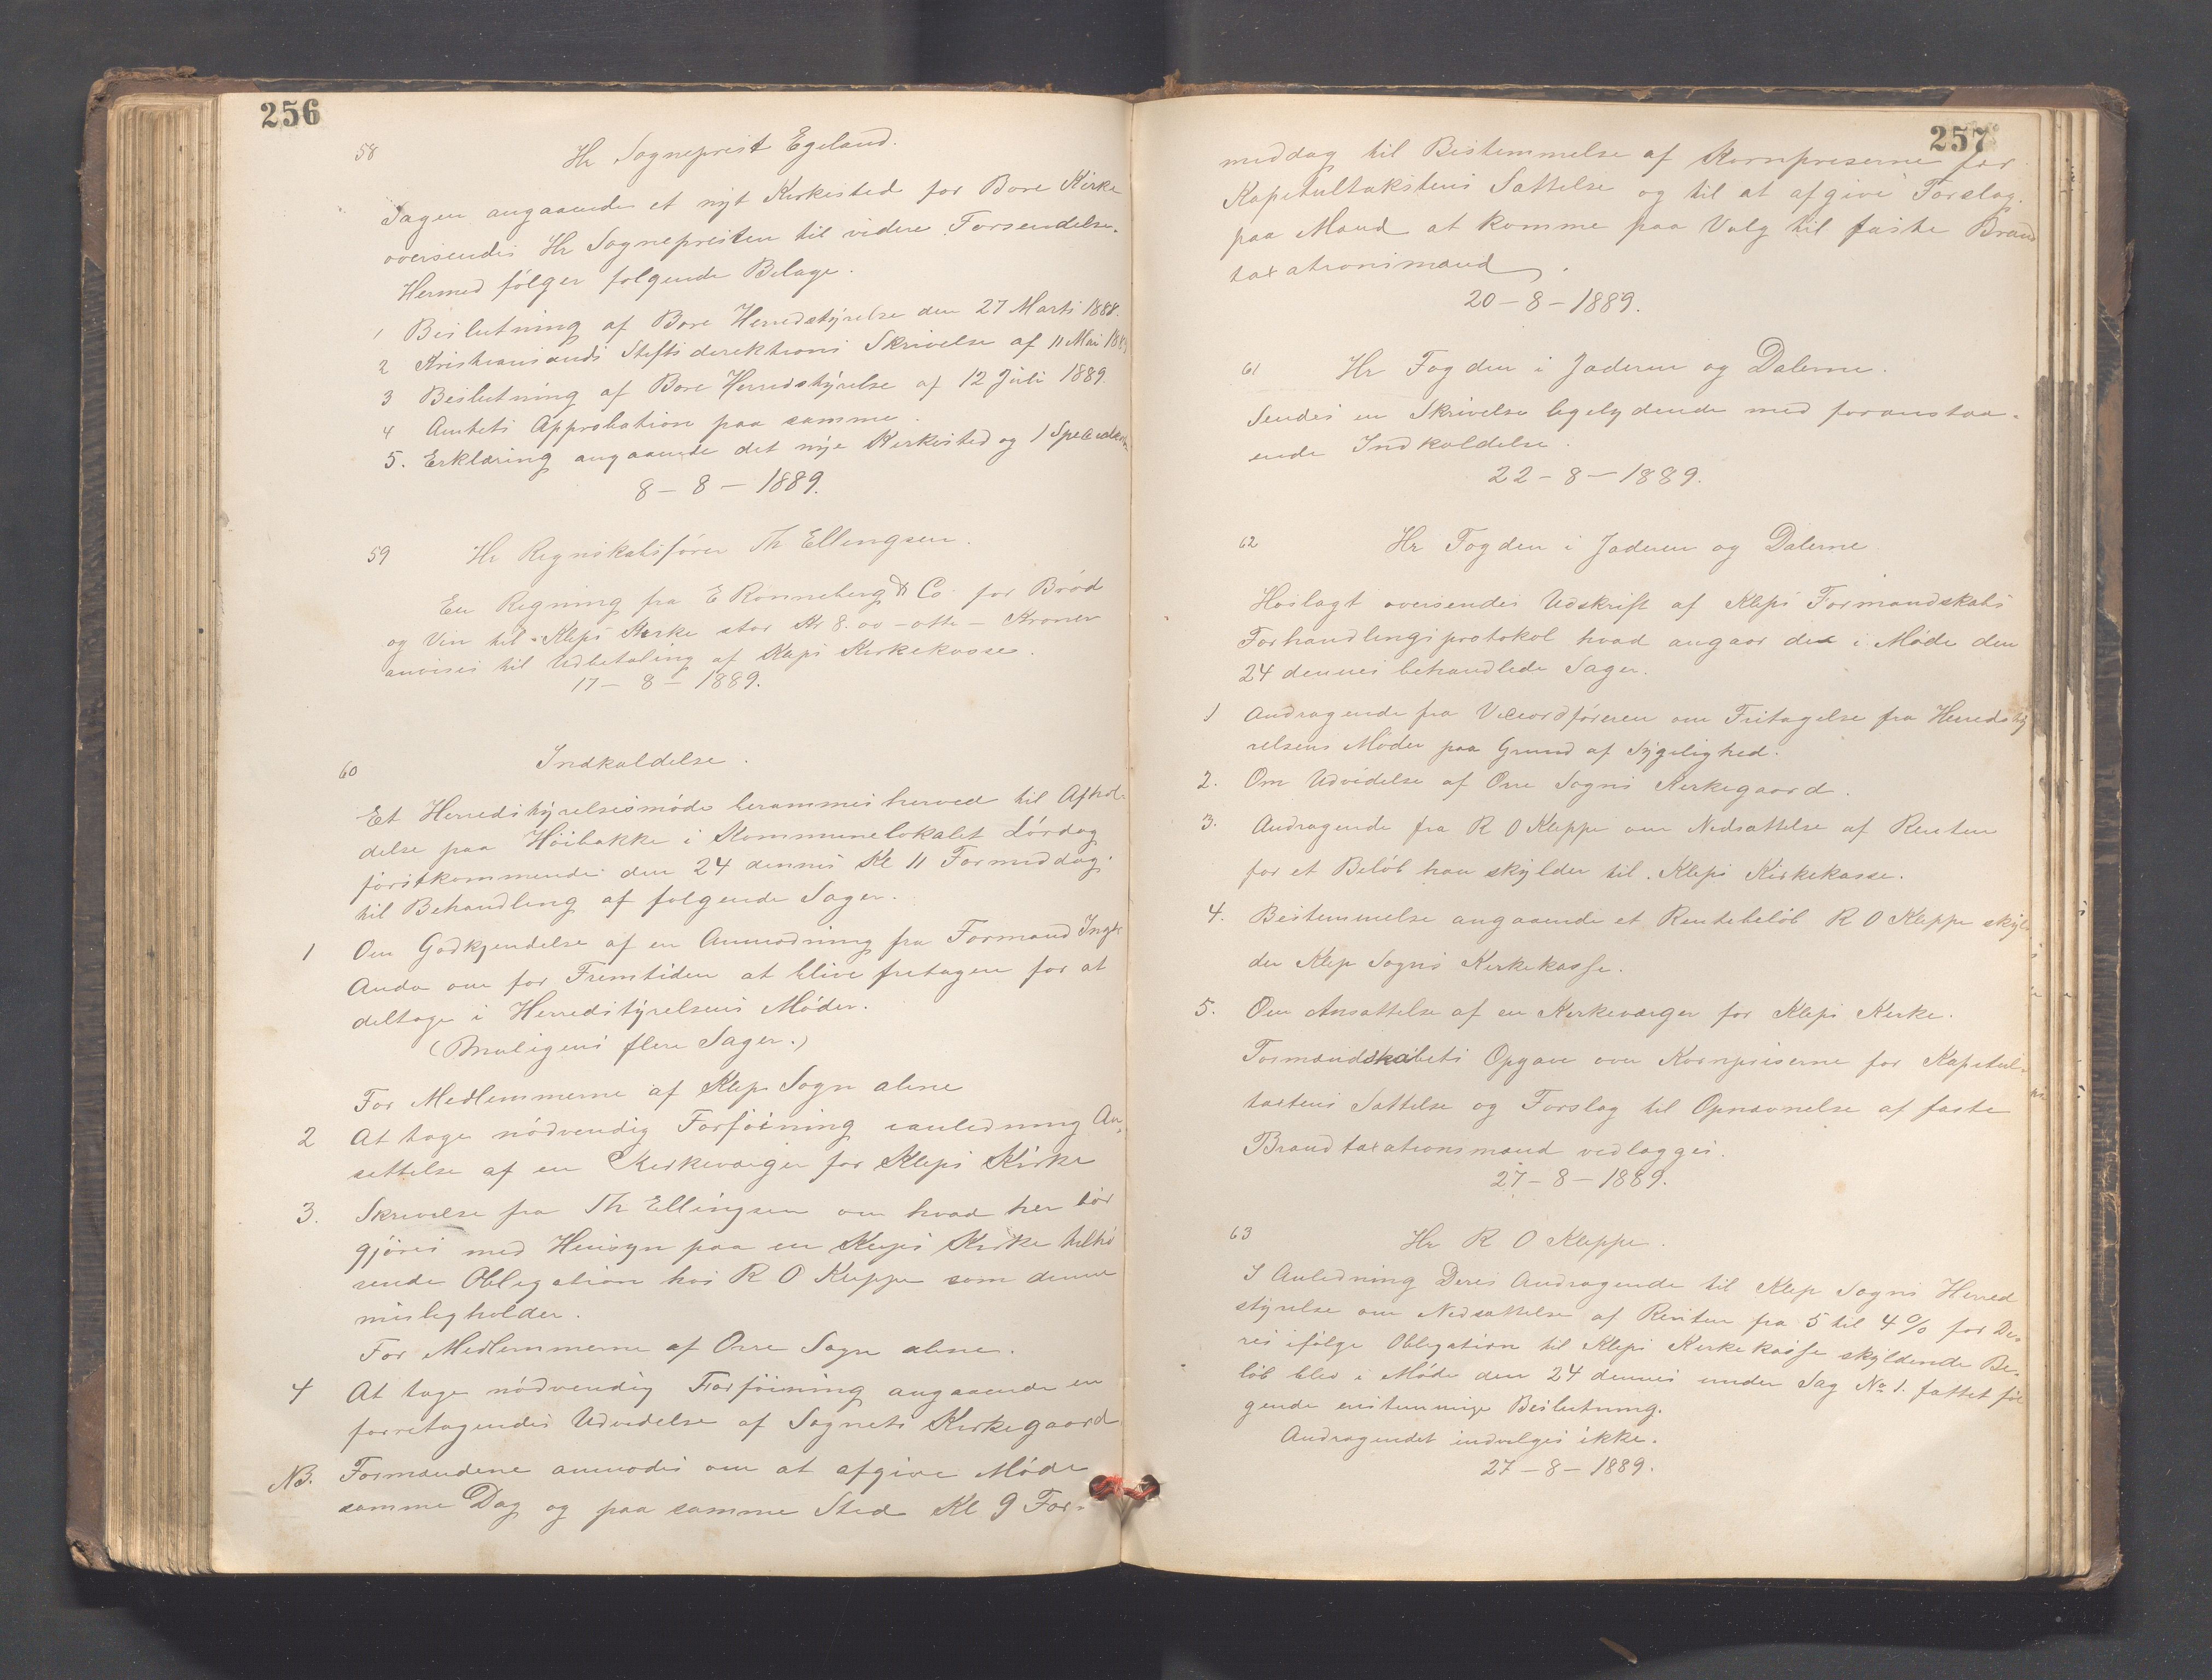 256
58 Hr Sogneprest Egeland.
Sagen angaaende et nyt Kirkested for Bore Kirke
oversendes Hr Sognepresten til videre Forsendelse.
Hermed følger følgende Bilage.
1 Beslutning af Bore Herredstyrelse den 27 Marts 1888.
2 Kristiansands Stiftsdirektions Skrivelse af 11 Mai
3 Beslutning af Bore Herredstyrelse af 12 Juli 1889.
4 Amtets Approbation paa samme
5. Erklæring angaaende det nye Kirkested og 1
8-8-1889.
59 Hr Regnskabsfører Th Ellingsen.
En Regning fra E Rønneberg & Co. for Brød
og Vin til Kleps Kirke stor Kr 8.00 - otte - Kroner
anvises til Udbetaling af Kleps Kirkekasse.
17-8-1889.
60 Indkaldelse.
Et Herredstyrelsesmøde berammes herved til Afhol-
delse paa Høibakke i Kommunelokalet Lørdag
førstkommende den 24 dennes Kl 11 Formiddag.
til Behandling af følgende Sager.
1 Om Godkjendelse af en Anmodning fra Formand
Anda om for Fremtiden at blive fritagen for at
deltage i Herredstyrelsens Møder.
(Muligens flere Sager.)
For Medlemmerne af Klep Sogn alene
2 At tage nødvendig Forføining ianledning An-
settelse af en Kirkeværger for Kleps Kirke
3. Skrivelse fra Th Ellingsen om hvad her bør
gjøres med Hensyn paa en Kleps Kirke tilhø
rende Obligation hos R O Kleppe som denne
misligholder.
For Medlemmerne af Orre Sogn alene.
4 At tage nødvendig Forføining angaaende en
foretagendes Udvidelse af Sognets Kirkegaard
NB. Formændene anmodes om at afgive Møde
samme Dag og paa samme Sted Kl 9 For-
257
middag til Bestemmelse af Kornpriserne for
Kapitultakstens Sættelse og til at afgive Forslag.
paa Mænd at komme paa Valg til faste Brand
taxationsmænd.
20-8-1889.
61 Hr Fogden i Jæderen og Dalerne.
Sendes en Skrivelse ligelydende med foranstaa-
ende Indkaldelse.
22-8-1889.
62 Hr Fogden i Jæderen og Dalerne
Hoslagt oversendes Udskrift af Kleps Formandskabs
Forhandlingsprotokol hvad angaar de i Møde den
24 dennes behandlede Sager.
1 Andragende fra Viceordføreren om Fritagelse fra Herredsty
relsens Møder paa Grund af Sygelighed.
2. Om Udvidelse af Orre Sogns Kirkegaard.
3. Andragende fra R O Kleppe om Nedsættelse af Renten
for et Beløb han skylder til Kleps Kirkekasse.
4. Bestemmelse angaaende et Rentebeløb R O Kleppe skyl
der Klep Sogns Kirkekasse.
5. Om Ansættelse af en Kirkeværger for Kleps Kirke.
Formandskabets Opgave over Kornpriserne for Kapitul-
taxtens Sættelse og Forslag til Opnævnelse af faste
Brandtaxationsmænd vedlægges.
27-8-1889.
63 Hr R O Kleppe.
I Anledning Deres Andragende til Klep Sogns Herred
styrelse om Nedsættelse af Renten fra 5 til 4 % for De-
res ifølge Obligation til Kleps Kirkekasse skyldende Be-
løb blev i Møde den 24 dennes under Sag No 1. fattet føl
gende enstemmige Beslutning.
Andragendet indvilges ikke.
27-8-1889.